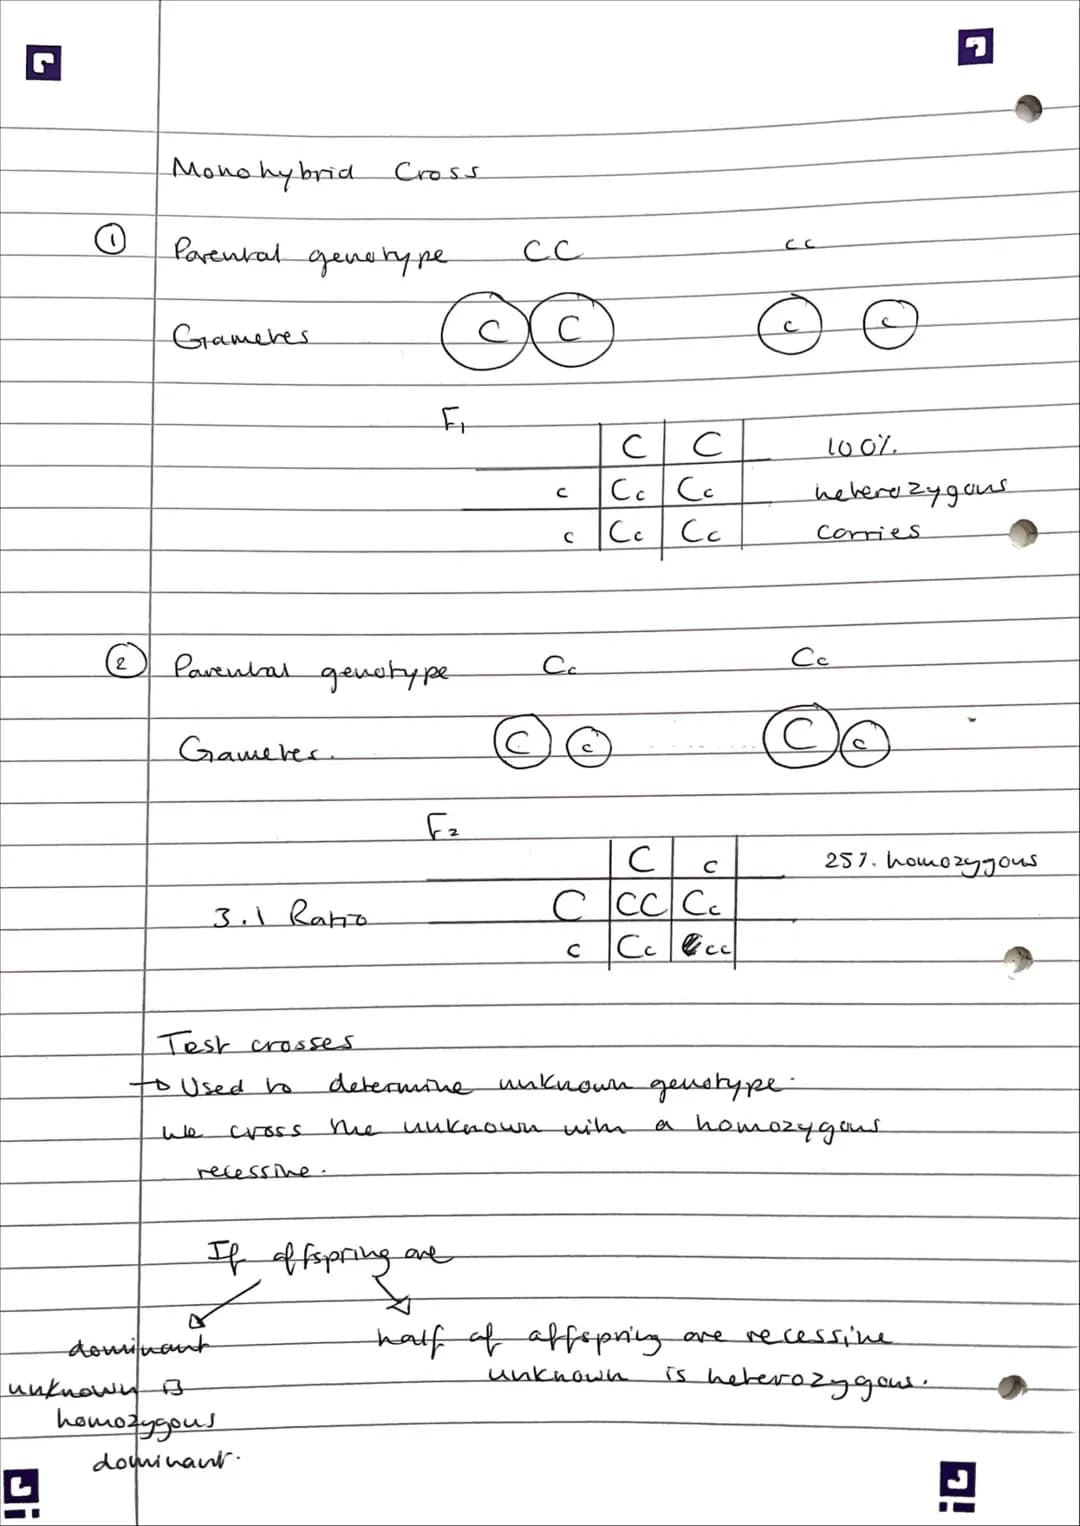 Monohybrid Cross
① Parental genotype CC cc
Gametes C C c c
F1
C C 100%
c Cc Cc heterozygous
c Cc Cc carries
② Parental genotype Cc Cc
Gametes. C c C c
F2
C c 25%. homozygous
3.1 Ratio C CC Cc
c Cc cc
Test crosses
→ Used to determine unknown genotype.
We cross the unknown with a homozygous
recessive.
If offspring are
dominant half of offspring are recessive
unknown is heterozygous.
unknown is
homozygous
dominant.